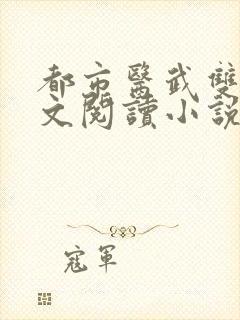 都市醫武雙
文閱讀小說
寇軍